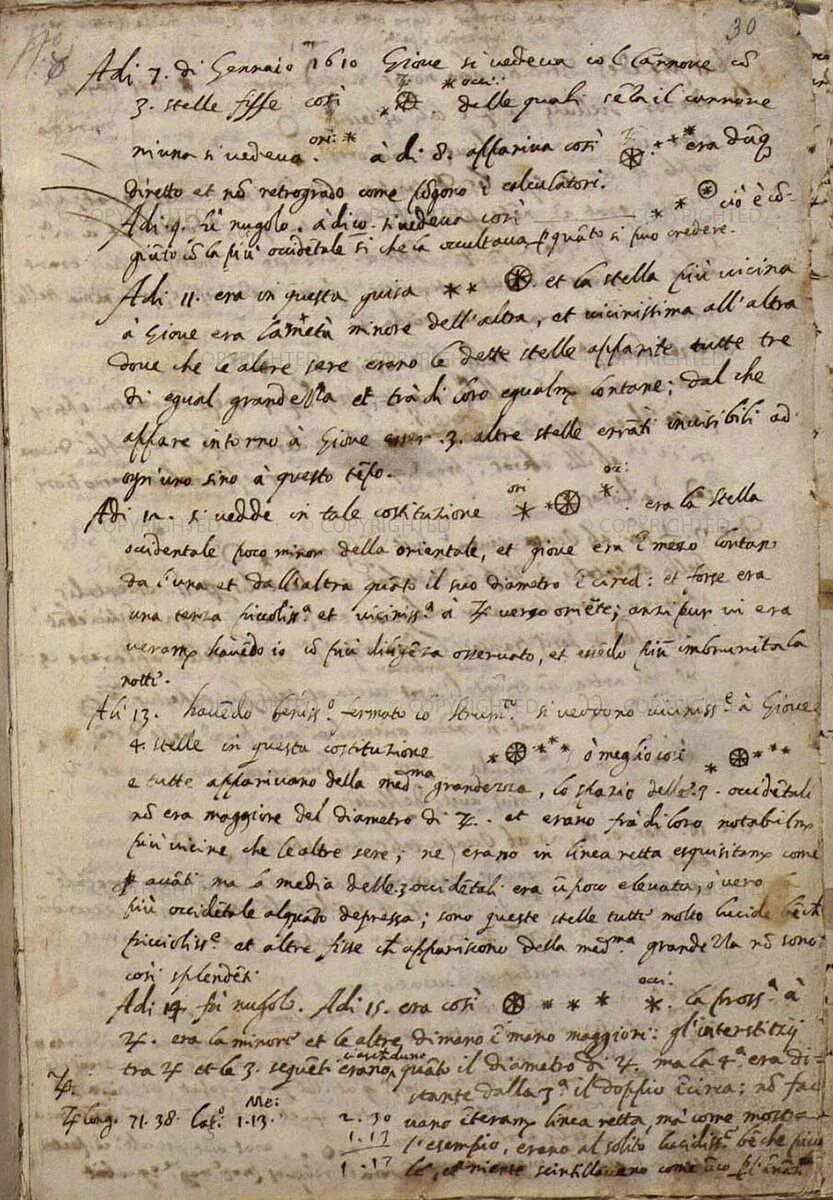 30
Adi 7. di Gennaio 1610 Giove si vedeva col Cannone cō
3. stelle fisse così ori: * * occi: delle quali sēza il cannone
niuna si vedeva. à dì 8. appariva così era dūq
diretto et nō retrogrado come pōgono i calculatori.
Adi 9. fù nugolo. à dì 10. si vedeva così ciò è cō-
giūto cō la più occidētale sì che la occultava p quāto si può credere.
Adi 11. era in questa guisa * * et la stella più vicina
à Giove era la metà minore dell'altra, et vicinissima all'altra
dove che le altre sere erano le dette stelle apparite tutte tre
di egual grandezza et trà di loro equalm lontane; dal che
appare intorno à Giove esser .3. altre stelle errāti invisibili ad
ogn'uno sino à questo tēpo.
Adi 12. si vedde in tale costituzione ori * * occ: * era la stella
occidentale poco minor della orientale, et giove era ī mezo lontan
da l'una et dall'altra quāto il suo diametro ī circa: et forse era
una terza piccoliss.ª et viciniss.ª à ♃ verso oriēte; anzi pur vi era
veram havēdo io cō più diligēza osservato, et essēdo più imbrunita la
notte.
Adi 13. havēdo beniss.º fermato lo strum.to si veddono viciniss.e à Giove
4. stelle in questa costituzione * * * * ò meglio così * * * *
e tutte apparivano della med.ma grandezza, lo spazio delle .3. occidētali
nō era maggiore del diametro di ♃. et erano frà di loro notabilm
più vicine che le altre sere; ne erano in linea retta esquisitam come
p avāti ma la media delle 3 occidētali era ū poco elevata, ò vero la
più occidētale alquāto depressa; sono queste stelle tutte molto lucide bēch
picciolis.e et altre fisse ch appariscono della med.ma grandezza nō sono
così splendēti.
Adi 14 fù nugolo. Adi 15. era così * * * occi: * la pross.ª à
♃. era la minore et le altre di mano ī mano maggiori: gl'interstizij
tra ♃ et le 3. seguēti erano, quāto il diametro di ♃. ma la 4.ª era di-
stante dalla 3.ª il doppio ī circa: nō fac
vano īteram linea retta, mà come mostra
l'esempio, erano al solito lucidiss.e bēche picco
le, et niente scintillavano come
♃.
♃ long. 71.38. lat.º Me: 1.13.
2. 30
1. 13
1. 17
© COPYRIGHTED